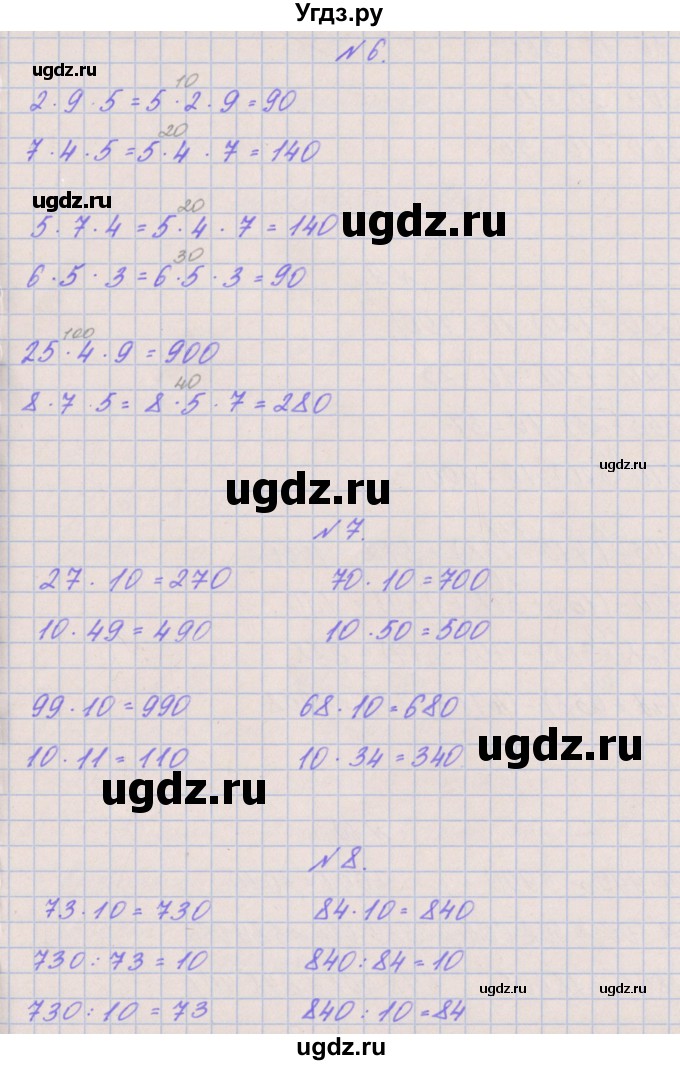 Угдз.ру
№ 6.
ugdz.ru
10
2 · 9 · 5 = 5 · 2 · 9 = 90
20
7 · 4 · 5 = 5 · 4 · 7 = 140
ugdz.ru
20
5 · 7 · 4 = 5 · 4 · 7 = 140
ugdz.ru
30
6 · 5 · 3 = 6 · 5 · 3 = 90
100
25 · 4 · 9 = 900
40
8 · 7 · 5 = 8 · 5 · 7 = 280
ugdz.ru
ugdz.ru
№ 7.
27 · 10 = 270 70 · 10 = 700
10 · 49 = 490 10 · 50 = 500
99 · 10 = 990 68 · 10 = 680
10 · 11 = 110 10 · 34 = 340
ugdz.ru
ugdz.ru
№ 8.
73 · 10 = 730 84 · 10 = 840
730 : 73 = 10 840 : 84 = 10
ugdz.ru
ugdz.ru
730 : 10 = 73 840 : 10 = 84
ugdz.ru